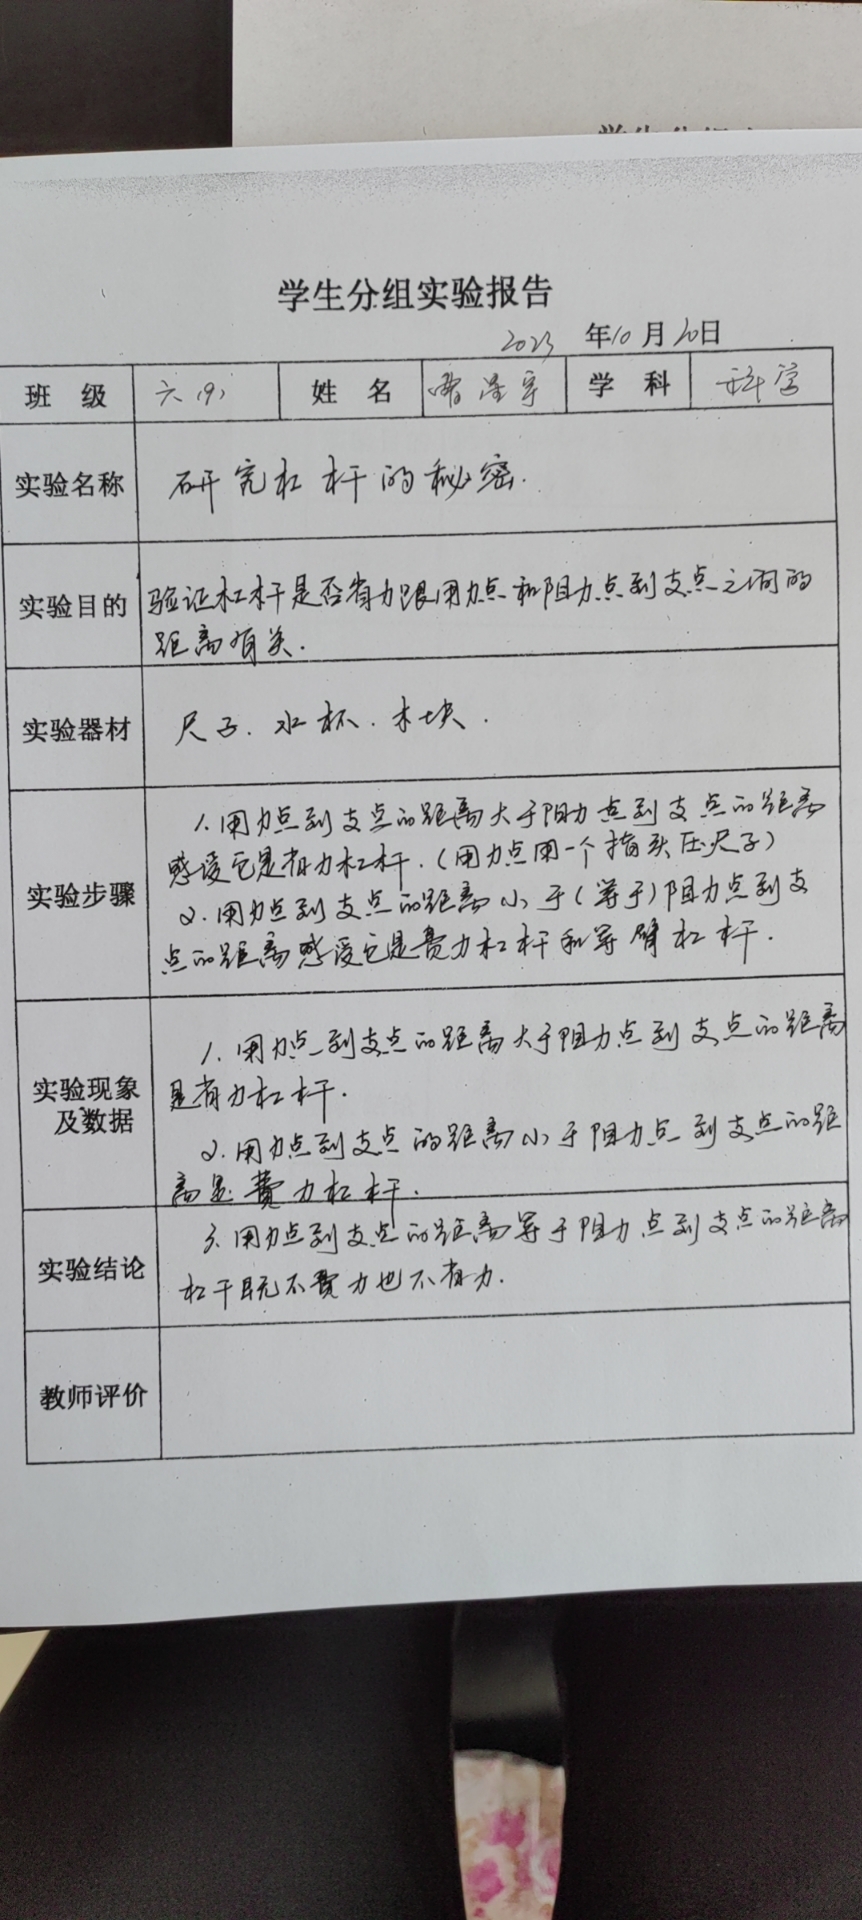 学生分组实验报告
2023 年10月20日
班 级 六(9) 姓 名 泽宇 学 科 科学
实验名称 研究杠杆的秘密.
实验目的 验证杠杆是否省力跟用力点和阻力点到支点之间的
距离有关.
实验器材 尺子.水杯.木块.
实验步骤
1.用力点到支点的距离大于阻力点到支点的距离
感受它是省力杠杆.(用力点用一个指头压尺子)
2.用力点到支点的距离小于(等于)阻力点到支
点的距离感受它是费力杠杆和等臂杠杆.
实验现象
及数据
1.用力点到支点的距离大于阻力点到支点的距离
是省力杠杆.
2.用力点到支点的距离小于阻力点到支点的距
离是费力杠杆.
实验结论
3.用力点到支点的距离等于阻力点到支点的距离
杠干既不费力也不省力.
教师评价